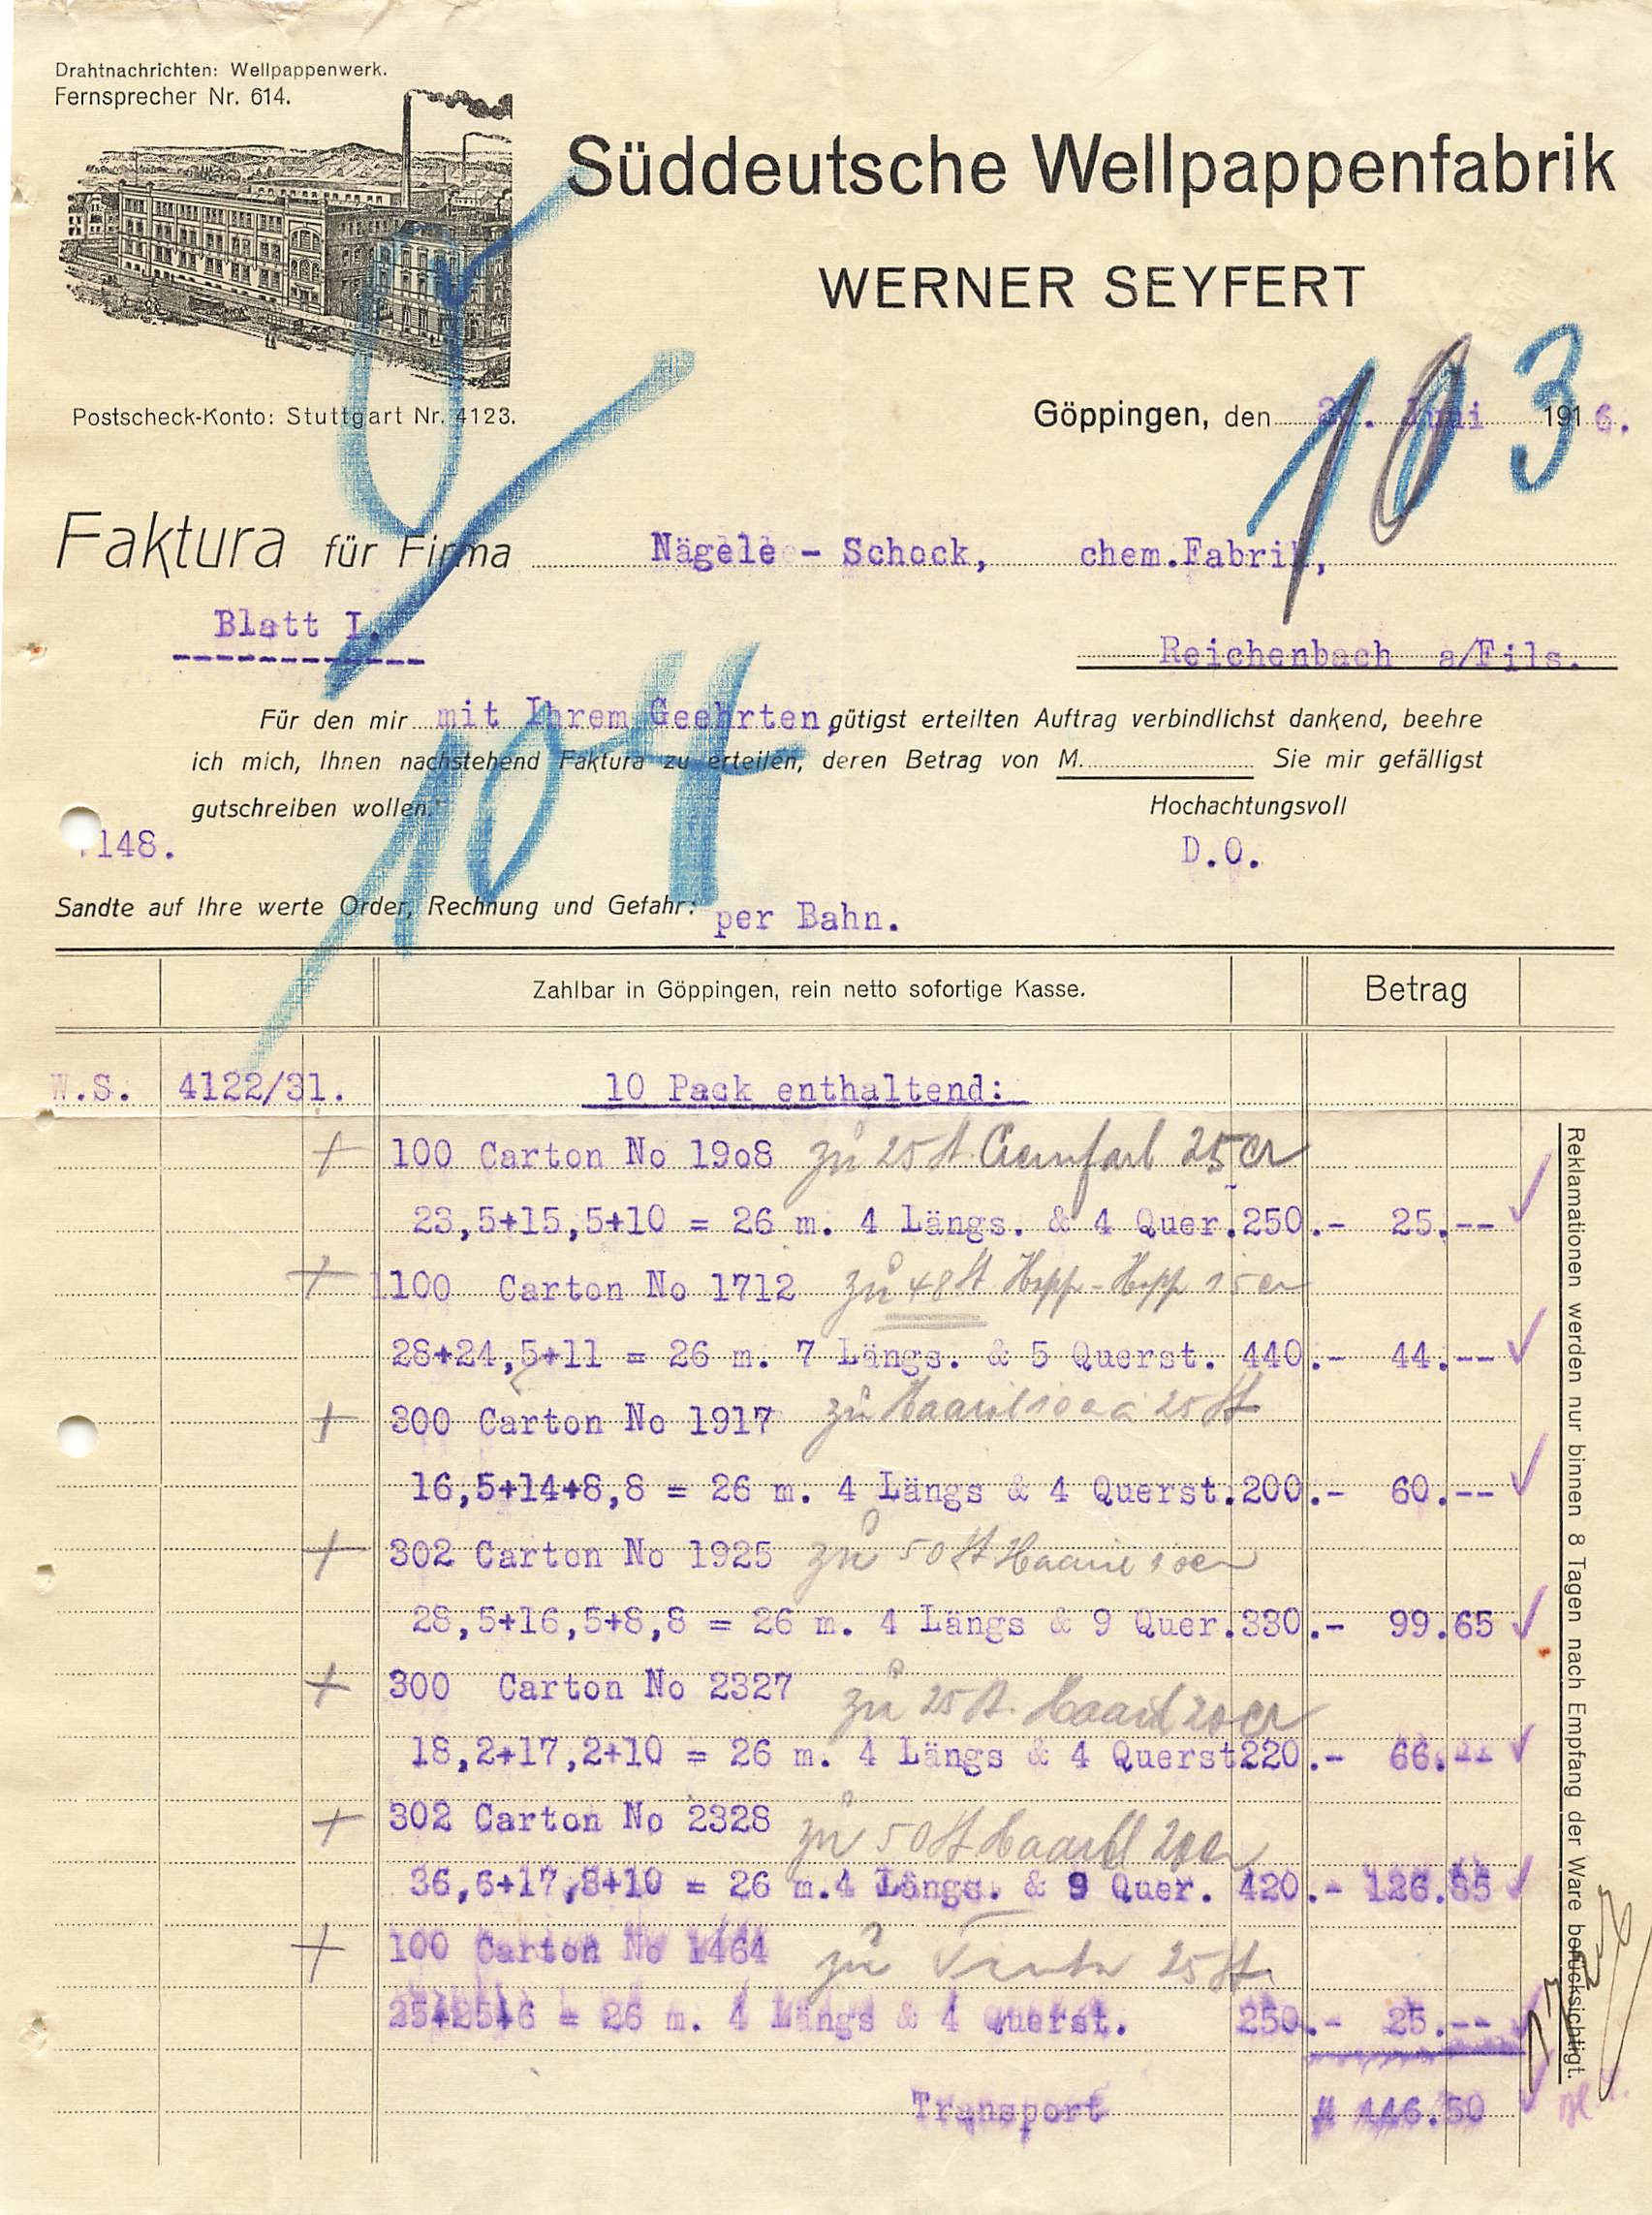 Drahtnachrichten: Wellpappenwerk.
Fernsprecher Nr. 614.
Süddeutsche Wellpappenfabrik
WERNER SEYFERT
Postscheck-Konto: Stuttgart Nr. 4123.
Göppingen, den Juni 1916.
103
Faktura für Firma Nägele - Schock, chem.Fabrik,
Blatt I.
Reichenbach a/Fils.
Für den mir mit Ihrem Geehrten, gütigst erteilten Auftrag verbindlichst dankend, beehre
ich mich, Ihnen nachstehend Faktura zu erteilen, deren Betrag von M. Sie mir gefälligst
gutschreiben wollen.
Hochachtungsvoll
148.
D.O.
104
Sandte auf Ihre werte Order, Rechnung und Gefahr: per Bahn.
Zahlbar in Göppingen, rein netto sofortige Kasse. Betrag
W.S. 4122/31. 10 Pack enthaltend:
100 Carton No 1908 zu 25 St.
23,5+15,5+10 = 26 m. 4 Längs. & 4 Quer. 250.- 25.--
100 Carton No 1712 zu 48 St Hopp-Hopp
28+24,5+11 = 26 m. 7 Längs. & 5 Querst. 440.- 44.--
300 Carton No 1917 zu 25 St
16,5+14+8,8 = 26 m. 4 Längs & 4 Querst. 200.- 60.--
302 Carton No 1925 zu 50 St
28,5+16,5+8,8 = 26 m. 4 Längs & 9 Quer. 330.- 99.65
300 Carton No 2327 zu 25 St.
18,2+17,2+10 = 26 m. 4 Längs & 4 Querst 220.- 66.--
302 Carton No 2328 zu 50 St
36,6+17,8+10 = 26 m. 4 Längs. & 9 Quer. 420.- 126.85
100 Carton No 1464 zu 25 St.
25+25+6 = 26 m. 4 Längs & 4 Querst. 250.- 25.--
Transport 446.50
Reklamationen werden nur binnen 8 Tagen nach Empfang der Ware berücksichtigt.